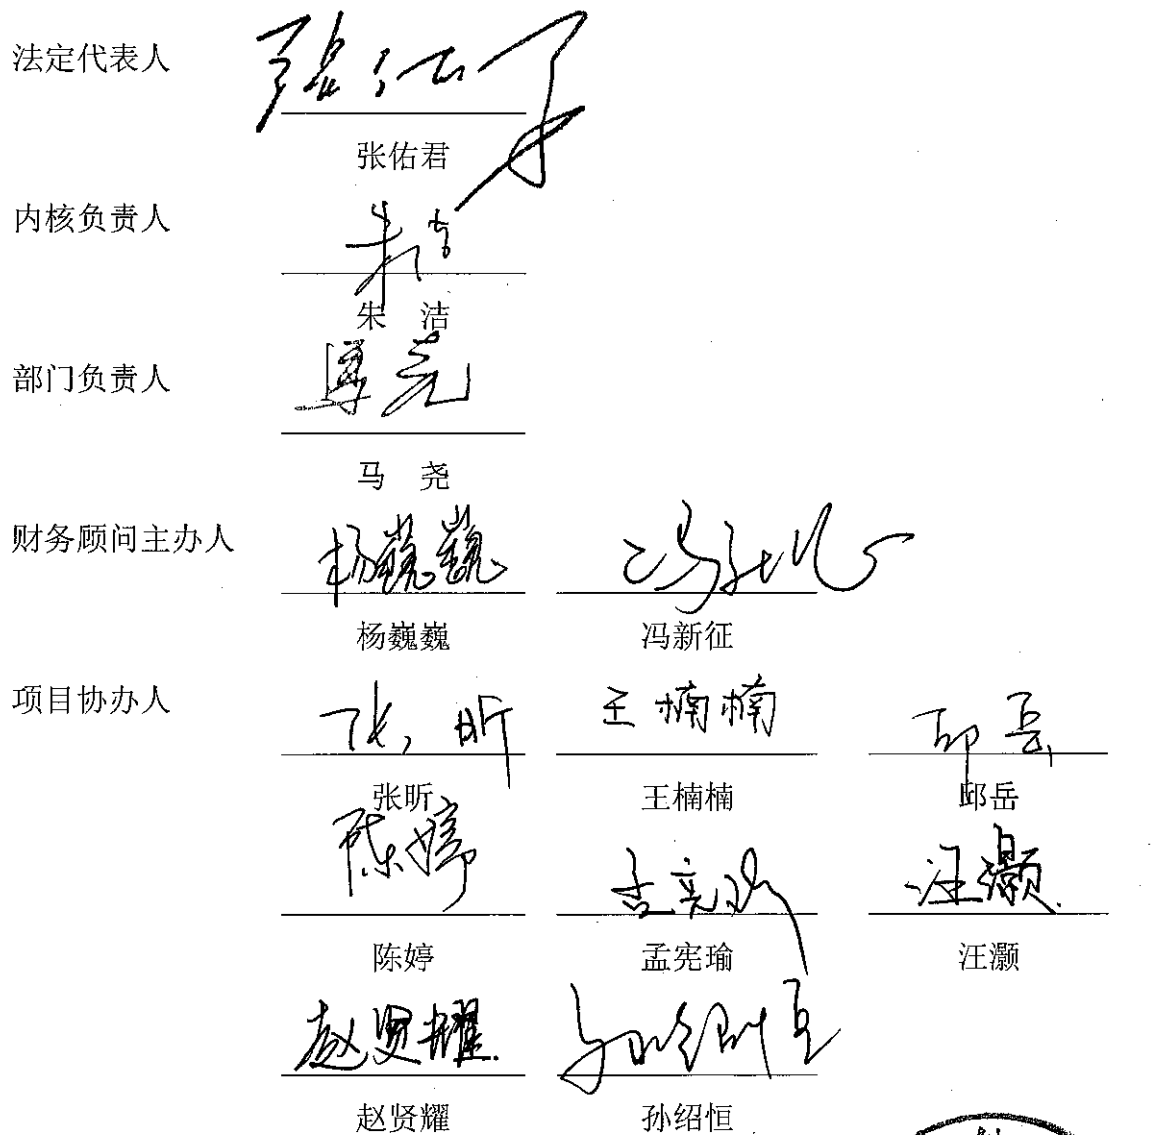 法定代表人
张佑君
内核负责人
朱 洁
部门负责人
马 尧
财务顾问主办人
杨巍巍 冯新征
项目协办人
张昕 王楠楠 邱岳
陈婷 孟宪瑜 汪灏
赵贤耀 孙绍恒